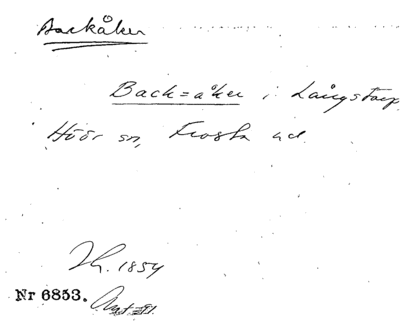 Backåker
Back=åker i Långstorp
Höör sn, Frosta hd.
1854
Nr 6853.